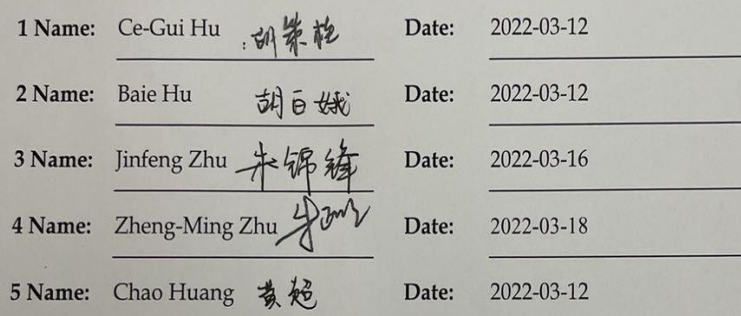 1 Name: Ce-Gui Hu 胡策桂 Date: 2022-03-12
2 Name: Baie Hu 胡白娥 Date: 2022-03-12
3 Name: Jinfeng Zhu 朱锦锋 Date: 2022-03-16
4 Name: Zheng-Ming Zhu Date: 2022-03-18
5 Name: Chao Huang 黄超 Date: 2022-03-12